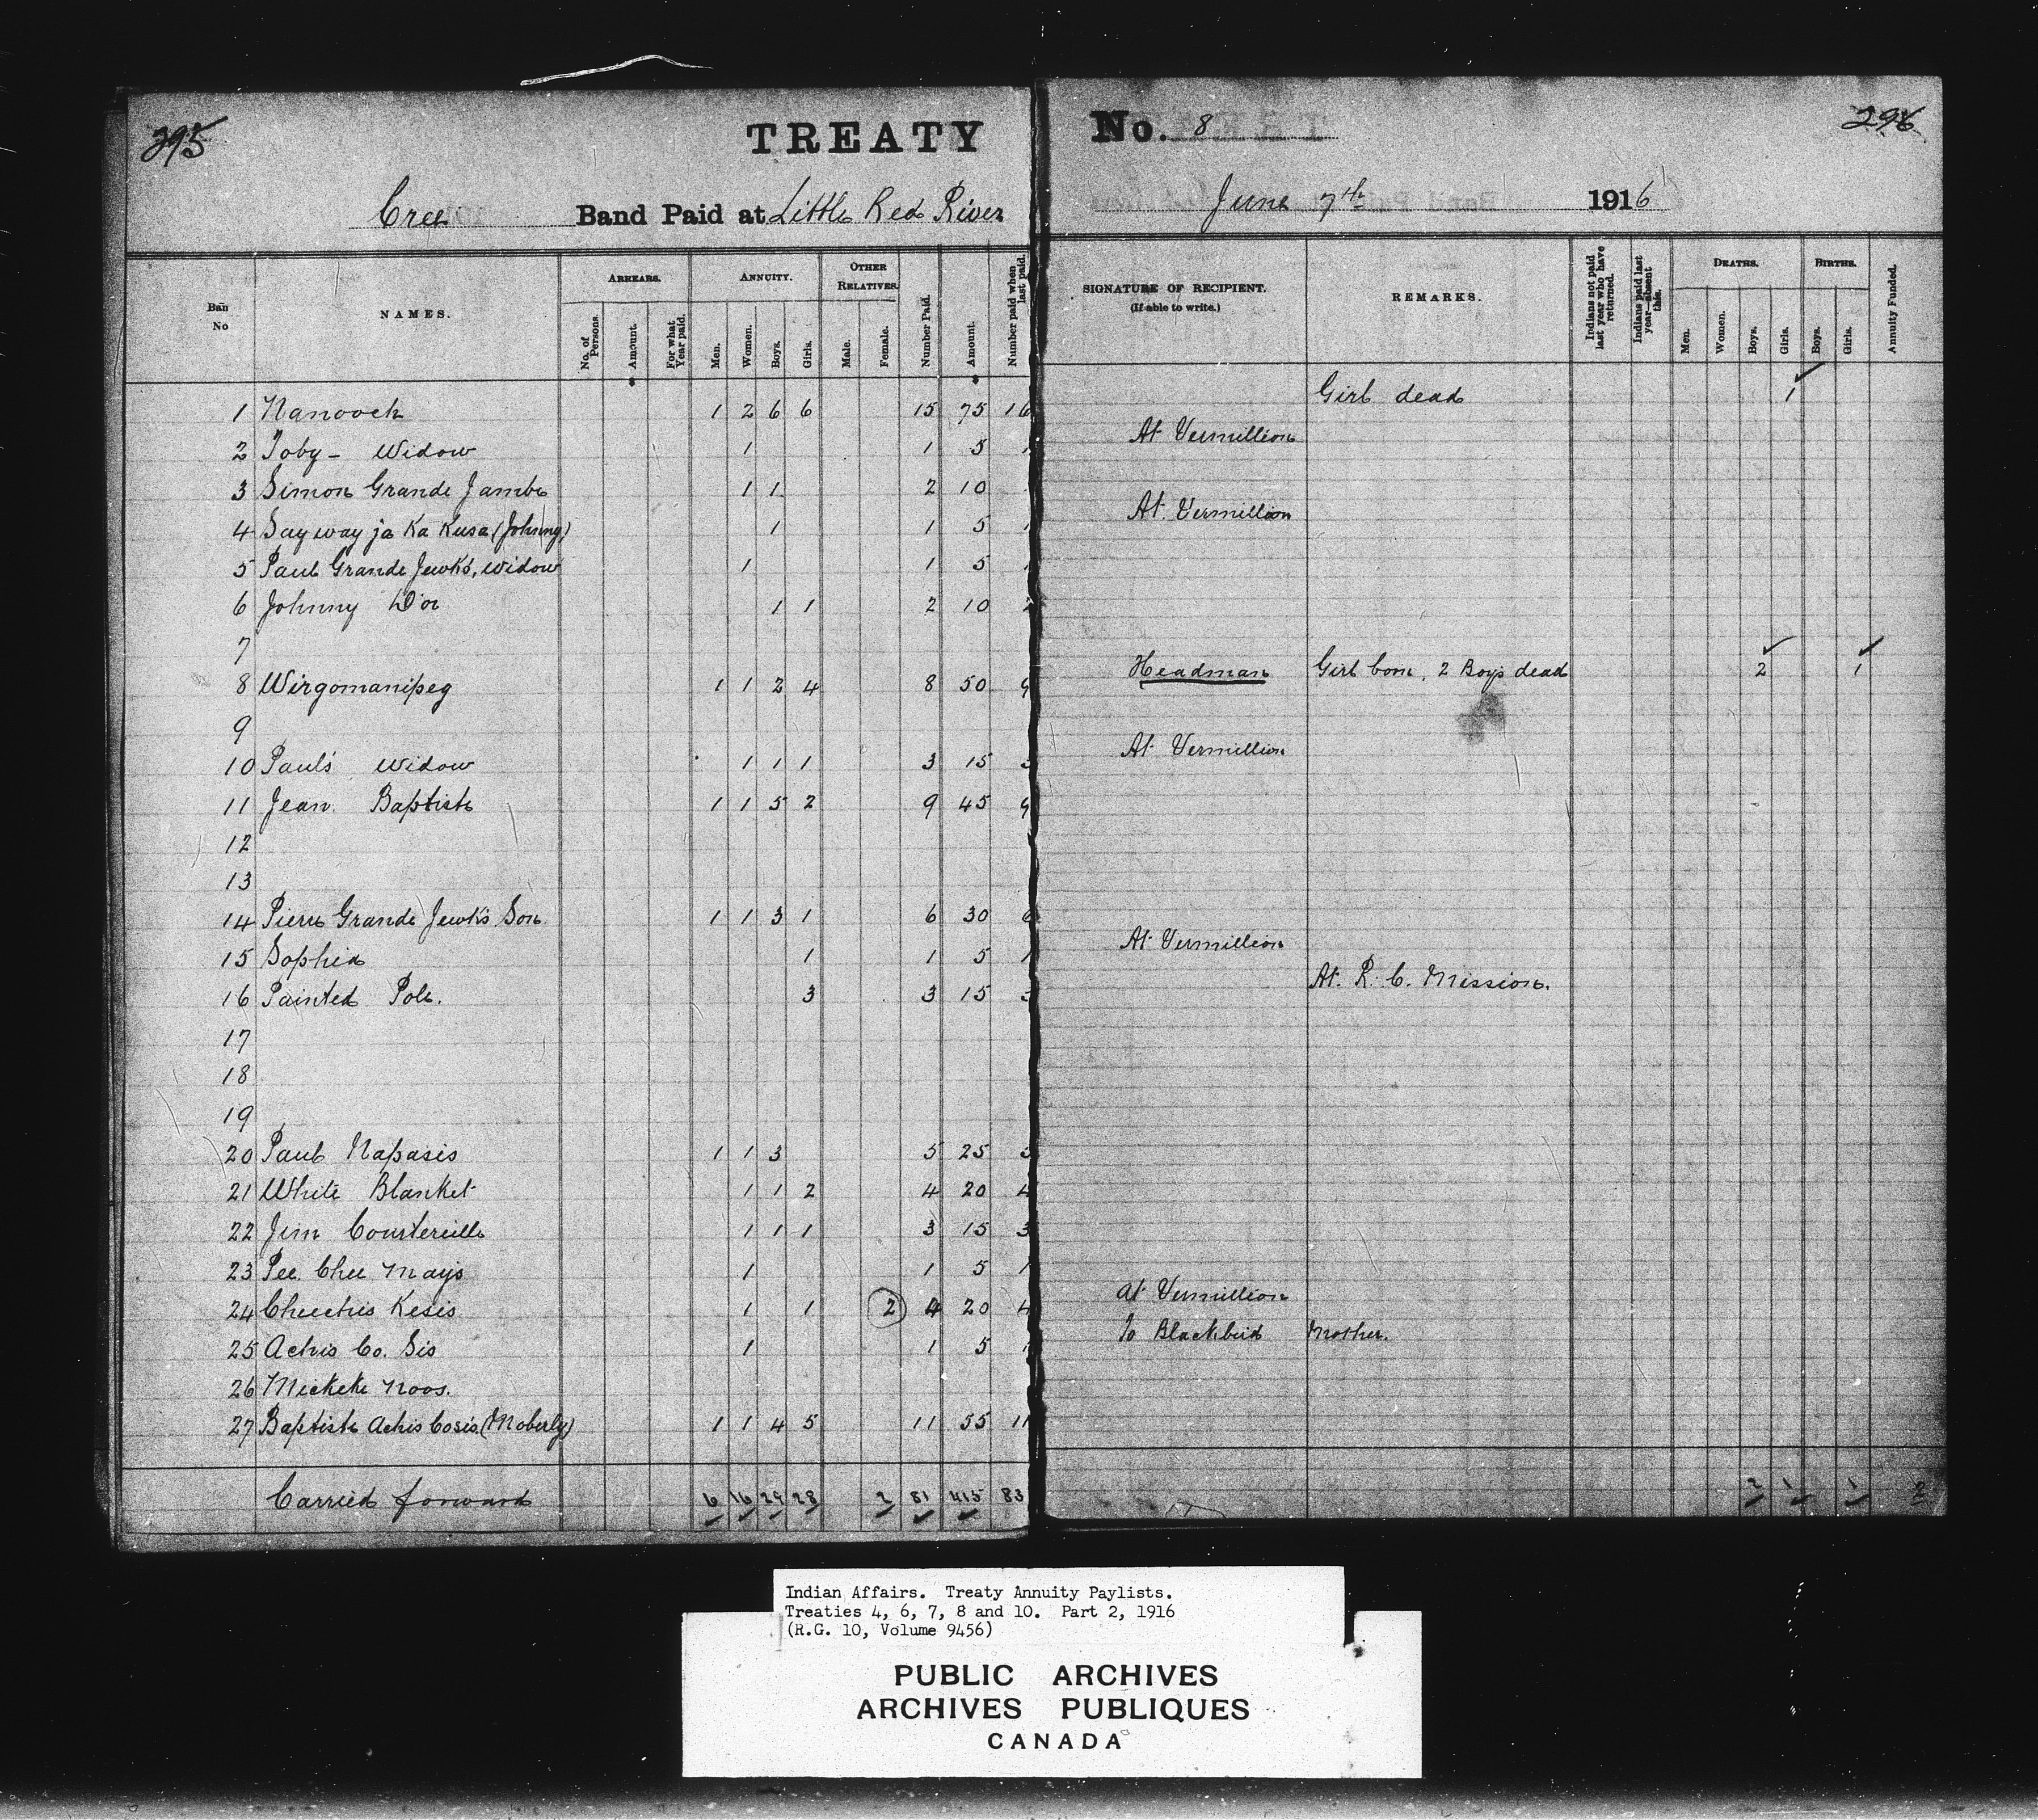 295
TREATY No. 8
296
Cree Band Paid at Little Red River June 7th 1916
Ban No
NAMES.
ARREARS.
No. of Persons.
Amount.
For what Year paid.
ANNUITY.
Men.
Women.
Boys.
Girls.
OTHER RELATIVES.
Male.
Female.
Number Paid.
Amount.
Number paid when last paid.
SIGNATURE OF RECIPIENT.
(If able to write.)
REMARKS.
Indians not paid last year who have returned.
Indians paid last year—absent this.
DEATHS.
Men.
Women.
Boys.
Girls.
BIRTHS.
Boys.
Girls.
Annuity Funded.
1 Nanooch 1 2 6 6 15 75 16 Girl dead 1
2 Toby - Widow 1 1 5 At Vermillion
3 Simon Grande Jambe 1 1 2 10
4 Say way ja Ka Kusa (Johnny) 1 1 5 At Vermillion
5 Paul Grande Jewk's, widow 1 1 5
6 Johnny D'or 1 1 2 10 2
7
8 Wirgomanipeg 1 1 2 4 8 50 9 Headman Girl born, 2 Boys dead 2 1
9
10 Paul's Widow 1 1 1 3 15 3 At Vermillion
11 Jean Baptiste 1 1 5 2 9 45 9
12
13
14 Pierre Grande Jewk's Son 1 1 3 1 6 30 6
15 Sophia 1 1 5 1 At Vermillion
16 Painted Pole. 3 3 15 3 At R. C. Mission.
17
18
19
20 Paul Napasis 1 1 3 5 25 5
21 White Blanket 1 1 2 4 20 4
22 Jim Courtereille 1 1 1 3 15 3
23 Pee Chee Mays 1 1 5 1
24 Cheechis Kesis 1 1 2 4 20 4 At Vermillion
25 Achis Co. Sis 1 1 5 To Blackbird Mother.
26 Mickeke Noos.
27 Baptiste Achis Cosis (Moberly) 1 1 4 5 11 55 11
Carried forward 6 16 29 28 2 81 415 83 2 1 1 2
Indian Affairs. Treaty Annuity Paylists.
Treaties 4, 6, 7, 8 and 10. Part 2, 1916
(R.G. 10, Volume 9456)
PUBLIC ARCHIVES
ARCHIVES PUBLIQUES
CANADA